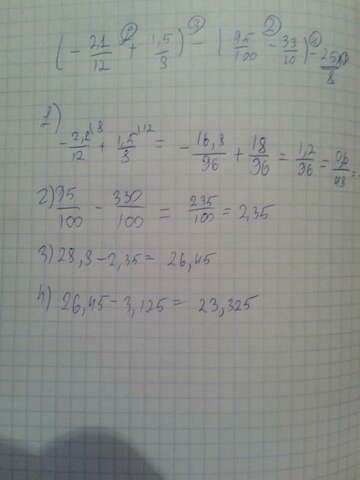 (- 2,1/12 + 1,5/3) - (95/100 - 33/10) - 25/8
1)
- 2,1/12 + 1,5/3 = - 16,8/96 + 18/96 = 1,2/96 =
2) 95/100 - 330/100 = 235/100 = 2,35
3) 28,8 - 2,35 = 26,45
4) 26,45 - 3,125 = 23,325